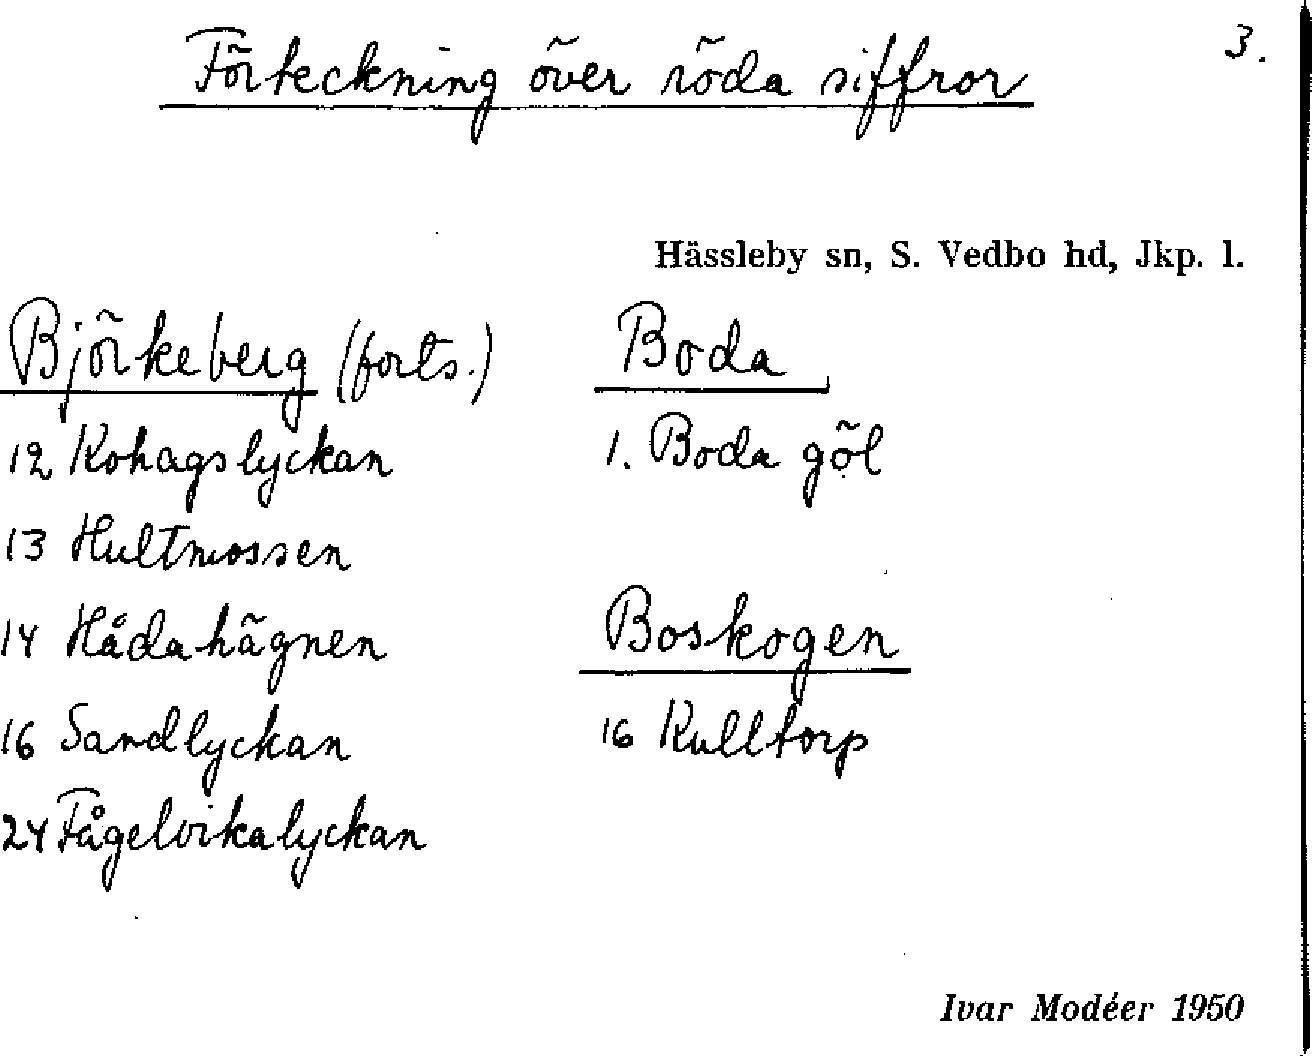 3.
Förteckning över röda siffror
Hässleby sn, S. Vedbo hd, Jkp. l.
Björkeberg (forts.)
12 Kohagslyckan
13 Hultmossen
14 Hådahägnen
16 Sandlyckan
24 Fågelvikalyckan
Boda
1. Boda göl
Boskogen
16 Kulltorp
Ivar Modéer 1950